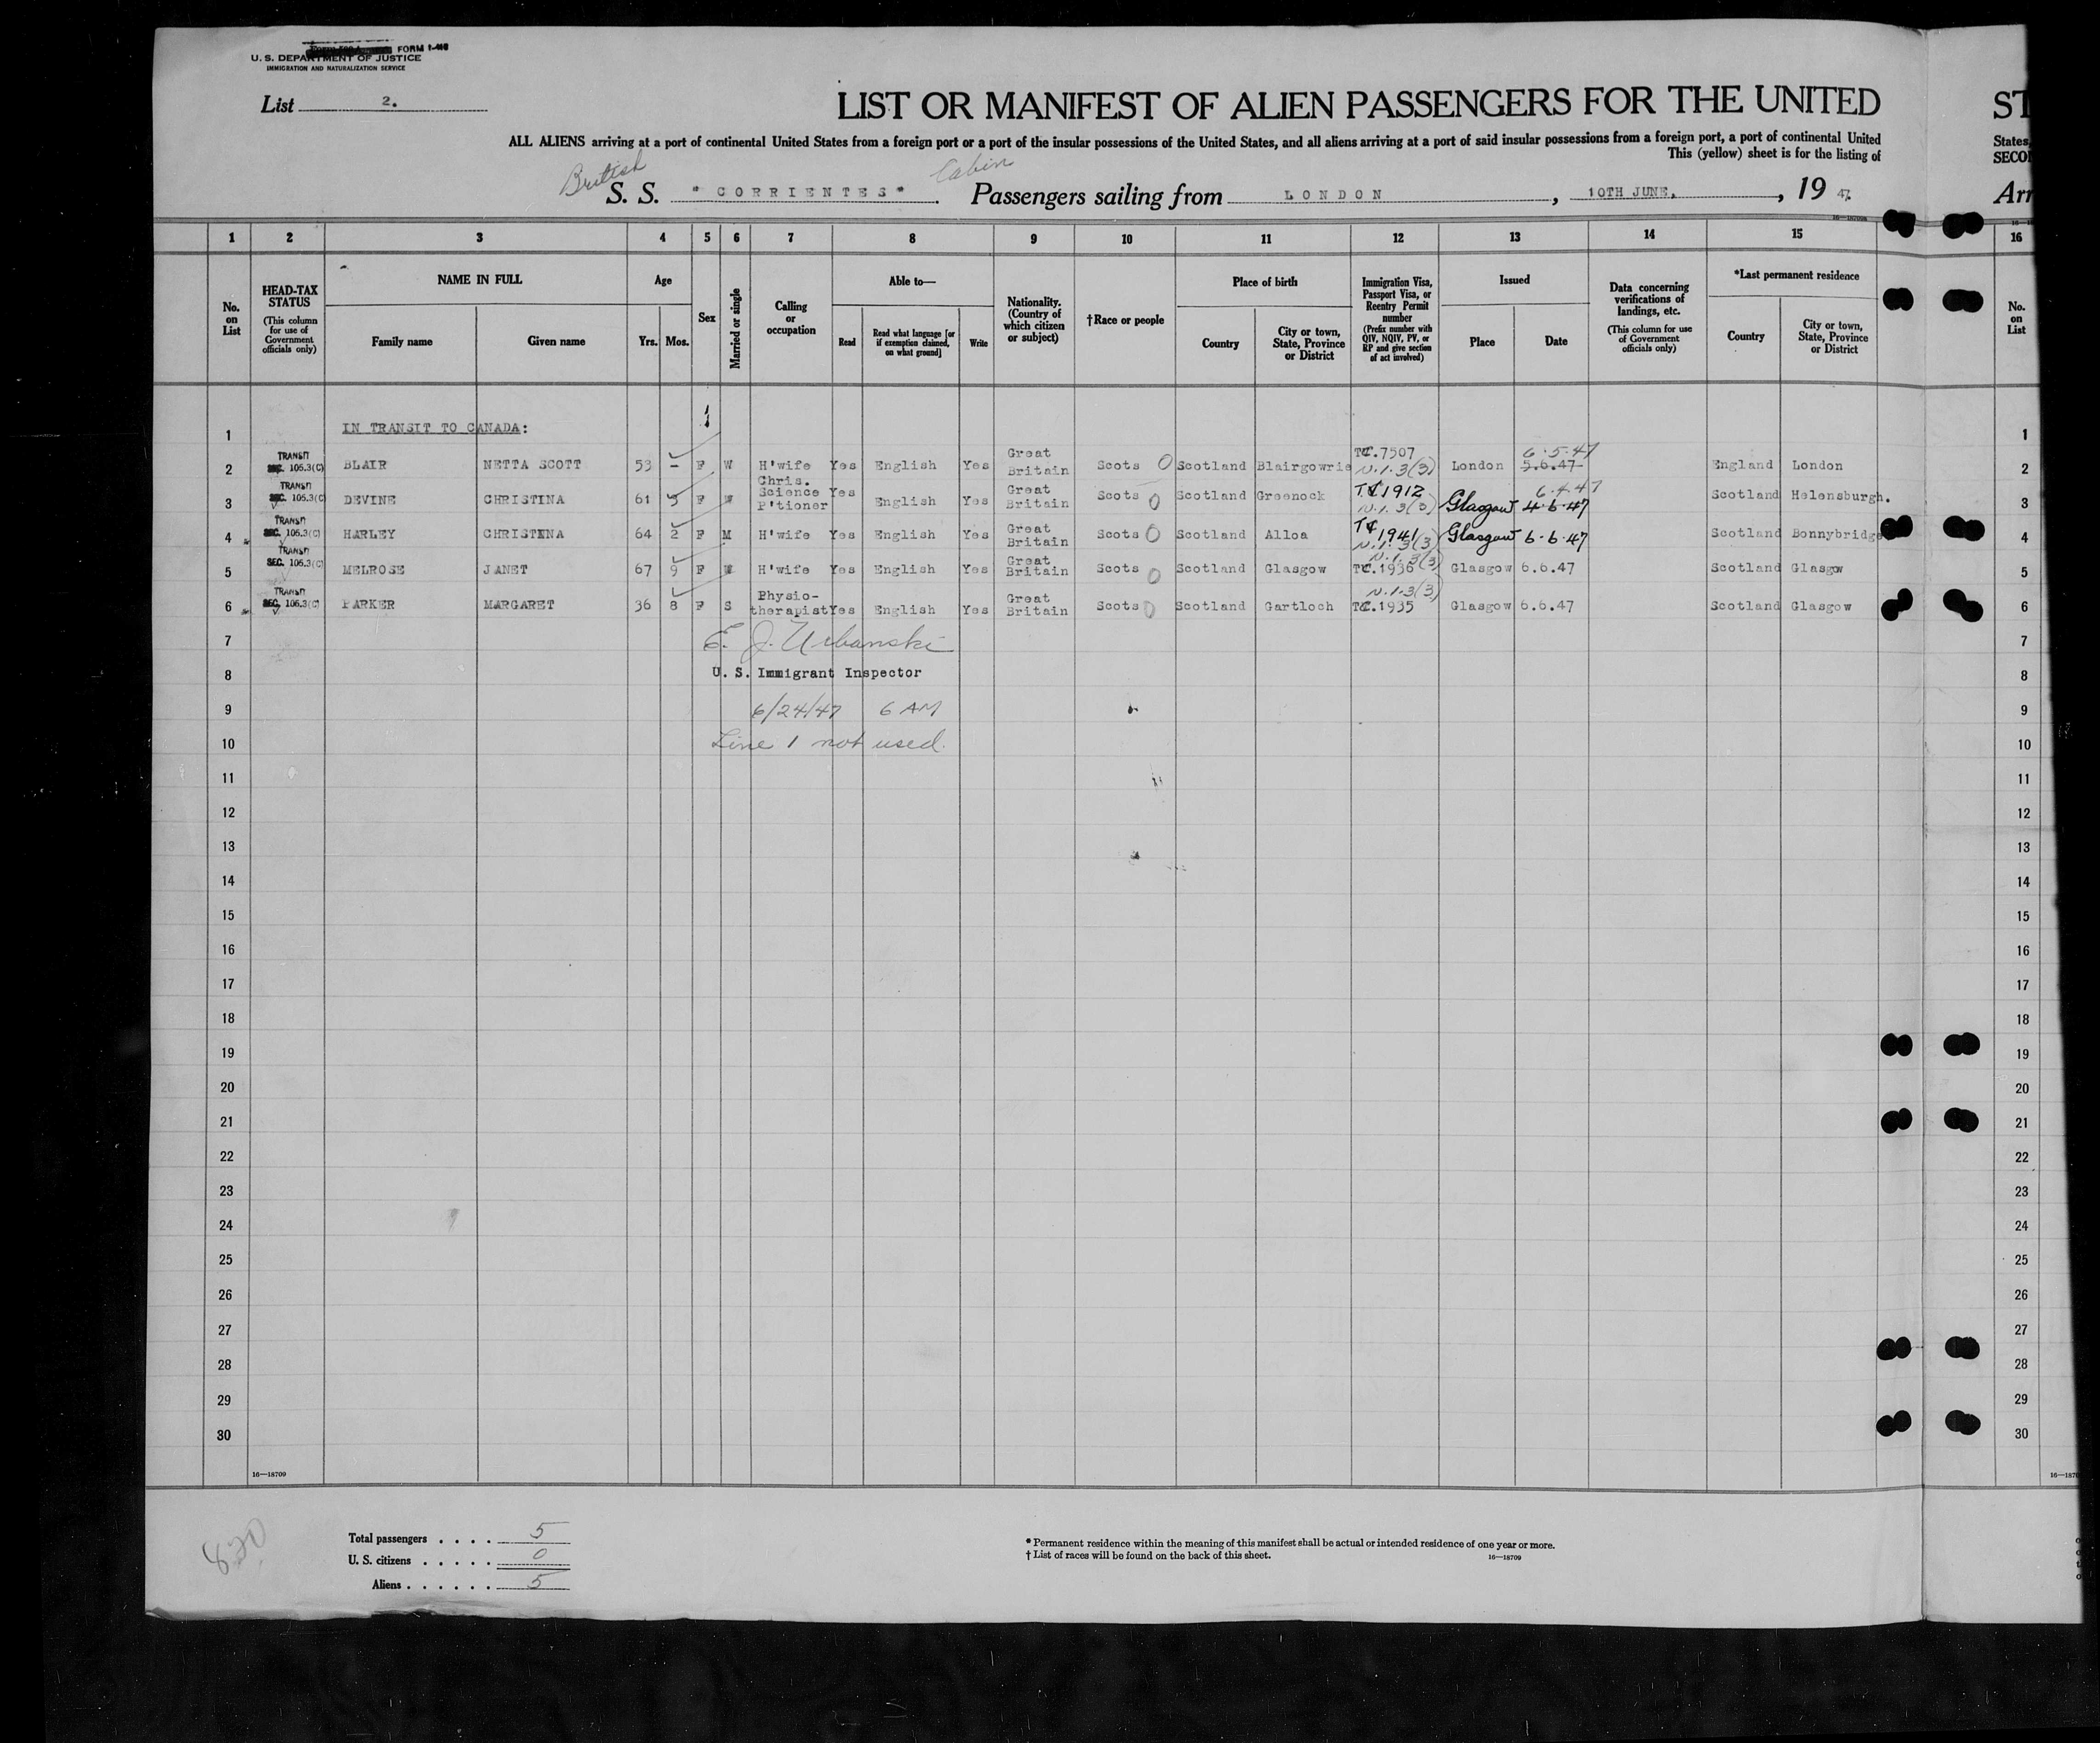 FORM I-418
U. S. DEPARTMENT OF JUSTICE
IMMIGRATION AND NATURALIZATION SERVICE
List 2.
LIST OR MANIFEST OF ALIEN PASSENGERS FOR THE UNITED
ST
ALL ALIENS arriving at a port of continental United States from a foreign port or a port of the insular possessions of the United States, and all aliens arriving at a port of said insular possessions from a foreign port, a port of continental United
States,
This (yellow) sheet is for the listing of
SECO
British
Cabin
S. S. " CORRIENTES " Passengers sailing from LONDON, 10TH JUNE, 19 47.
Arr
16—18709
1 2 3 4 5 6 7 8 9 10 11 12 13 14 15 16
No. on List
HEAD-TAX STATUS (This column for use of Government officials only)
NAME IN FULL
Family name Given name
Age
Yrs. Mos.
Sex
Married or single
Calling or occupation
Able to—
Read Read what language [or if exemption claimed, on what ground] Write
Nationality. (Country of which citizen or subject)
†Race or people
Place of birth
Country City or town, State, Province or District
Immigration Visa, Passport Visa, or Reentry Permit number (Prefix number with QIV, NQIV, PV, or RP and give section of act involved)
Issued
Place Date
Data concerning verifications of landings, etc. (This column for use of Government officials only)
*Last permanent residence
Country City or town, State, Province or District
No. on List
1 IN TRANSIT TO CANADA: 1
2 TRANSIT SEC. 105.3(C) BLAIR NETTA SCOTT 53 - F W H'wife Yes English Yes Great Britain Scots Scotland Blairgowrie TC.7507 N.1.3(3) London 5.6.47 6.5.47 England London 2
3 TRANSIT SEC. 105.3(C) DEVINE CHRISTINA 61 5 F W Chris. Science P'tioner Yes English Yes Great Britain Scots Scotland Greenock TC 1912 N.1.3(3) Glasgow 4.6.47 6.4.47 Scotland Helensburgh. 3
4 TRANSIT SEC. 105.3(C) HARLEY CHRISTENA 64 2 F M H'wife Yes English Yes Great Britain Scots Scotland Alloa TC 1941 N.1.3(3) Glasgow 6.6.47 Scotland Bonnybridge 4
5 TRANSIT SEC. 105.3(C) MELROSE JANET 67 9 F W H'wife Yes English Yes Great Britain Scots Scotland Glasgow N.1.3(3) TC.1936 Glasgow 6.6.47 Scotland Glasgow 5
6 TRANSIT SEC. 105.3(C) PARKER MARGARET 36 8 F S Physio-therapist Yes English Yes Great Britain Scots Scotland Gartloch N.1.3(3) TC.1935 Glasgow 6.6.47 Scotland Glasgow 6
7 E. J. Urbanski 7
8 U. S. Immigrant Inspector 8
9 6/24/47 6 AM 9
10 Line 1 not used. 10
11 11
12 12
13 13
14 14
15 15
16 16
17 17
18 18
19 19
20 20
21 21
22 22
23 23
24 24
25 25
26 26
27 27
28 28
29 29
30 30
16—18709
820
Total passengers . . . . 5
U. S. citizens . . . . . 0
Aliens . . . . . . 5
* Permanent residence within the meaning of this manifest shall be actual or intended residence of one year or more.
† List of races will be found on the back of this sheet.
16—18709